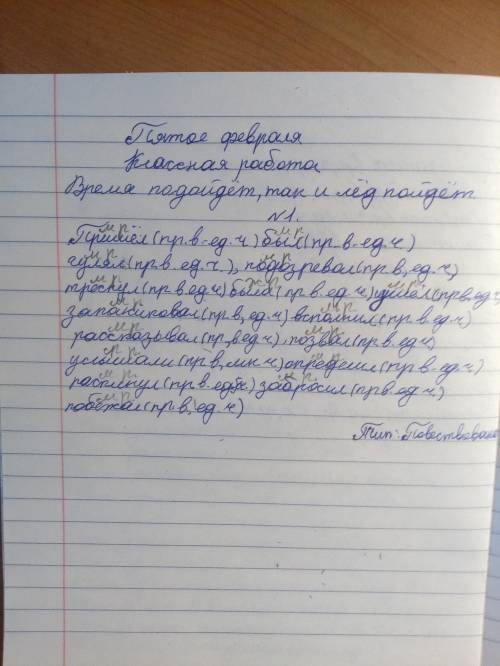 Пятое февраля
Классная работа
Время подойдёт, так и лёд пойдёт
№1.
м.р. м.р.
Пришёл (пр.в-ед.ч) был (пр.в-ед.ч)
м.р. м.р.
гулял (пр.в. ед.ч.), подозревал (пр.в, ед.ч)
м.р. ж.р. м.р.
треснул (пр.в ед.ч) была (пр.в. ед.ч) ушёл (пр.в, ед.ч,
м.р. м.р.
запаниковал (пр.в, ед.ч) вспомнил (пр.в. ед.ч)
м.р. м.р.
рассказывал (пр.в, ед.ч), позвал (пр.в ед.ч)
м.р.
услышали (пр.в, мн.ч) определил (пр.в- ед.ч)
м.р. м.р.
(пр.в. ед.ч) забросил (пр.в ед.ч)
м.р.
побежал (пр.в, ед.ч)
Тип: Повествование